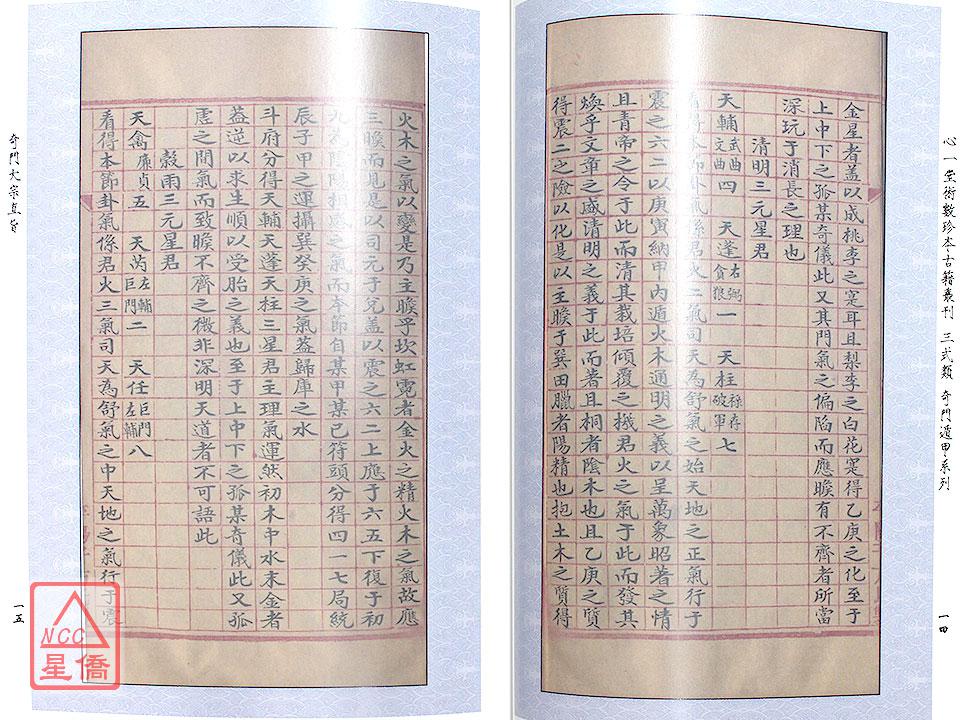 心一堂術數珍本古籍叢刊 三式類 奇門遁甲系列
一四
金星者蓋以成桃李之寔耳且梨李之白花寔得乙庚之化至于
上中下之孤某奇儀此又其門氣之偏陷而應瞭有不齊者所當
深玩于消長之理也
清明三元星君
天輔武曲文曲四 天蓬右弼貪狼一 天柱祿存破軍七
看得本節卦氣係君火二氣司天為舒氣之始天地之正氣行于
震之六二以庚寅納甲內遁火木通明之義以呈萬象昭著之情
且青帝之令于此而清其栽培傾覆之機君火之氣于此而發其
煥乎文章之盛清明之義于此而著且桐者陰木也且乙庚之賢
得震二之險以化是以主瞭于巽田臘者陽精也抱土木之質得
火木之氣以變是乃主瞭乎坎虹霓者金火之精火木之氣故應
三瞭而見是以司元于兌蓋以震之六二上應于六五下復于初
九為陰陽相感之氣而本節自某甲某己符頭分得四一七局統
辰子甲之運攝巽癸庚之氣蓋歸庫之水
斗府分得天輔天蓬天柱三星君主理氣運然初木中水末金者
益逆以求生順以受胎之義也至于上中下之孤某奇儀此又孤
虛之間氣而致瞭不齊之微非深明天道者不可語此
穀雨三元星君
天禽廉貞五 天芮左輔巨門二 天任巨門左輔八
看得本節卦氣係君火三氣司天為舒氣之中天地之氣行于震
奇門大宗直旨
一五
NCC
星僑